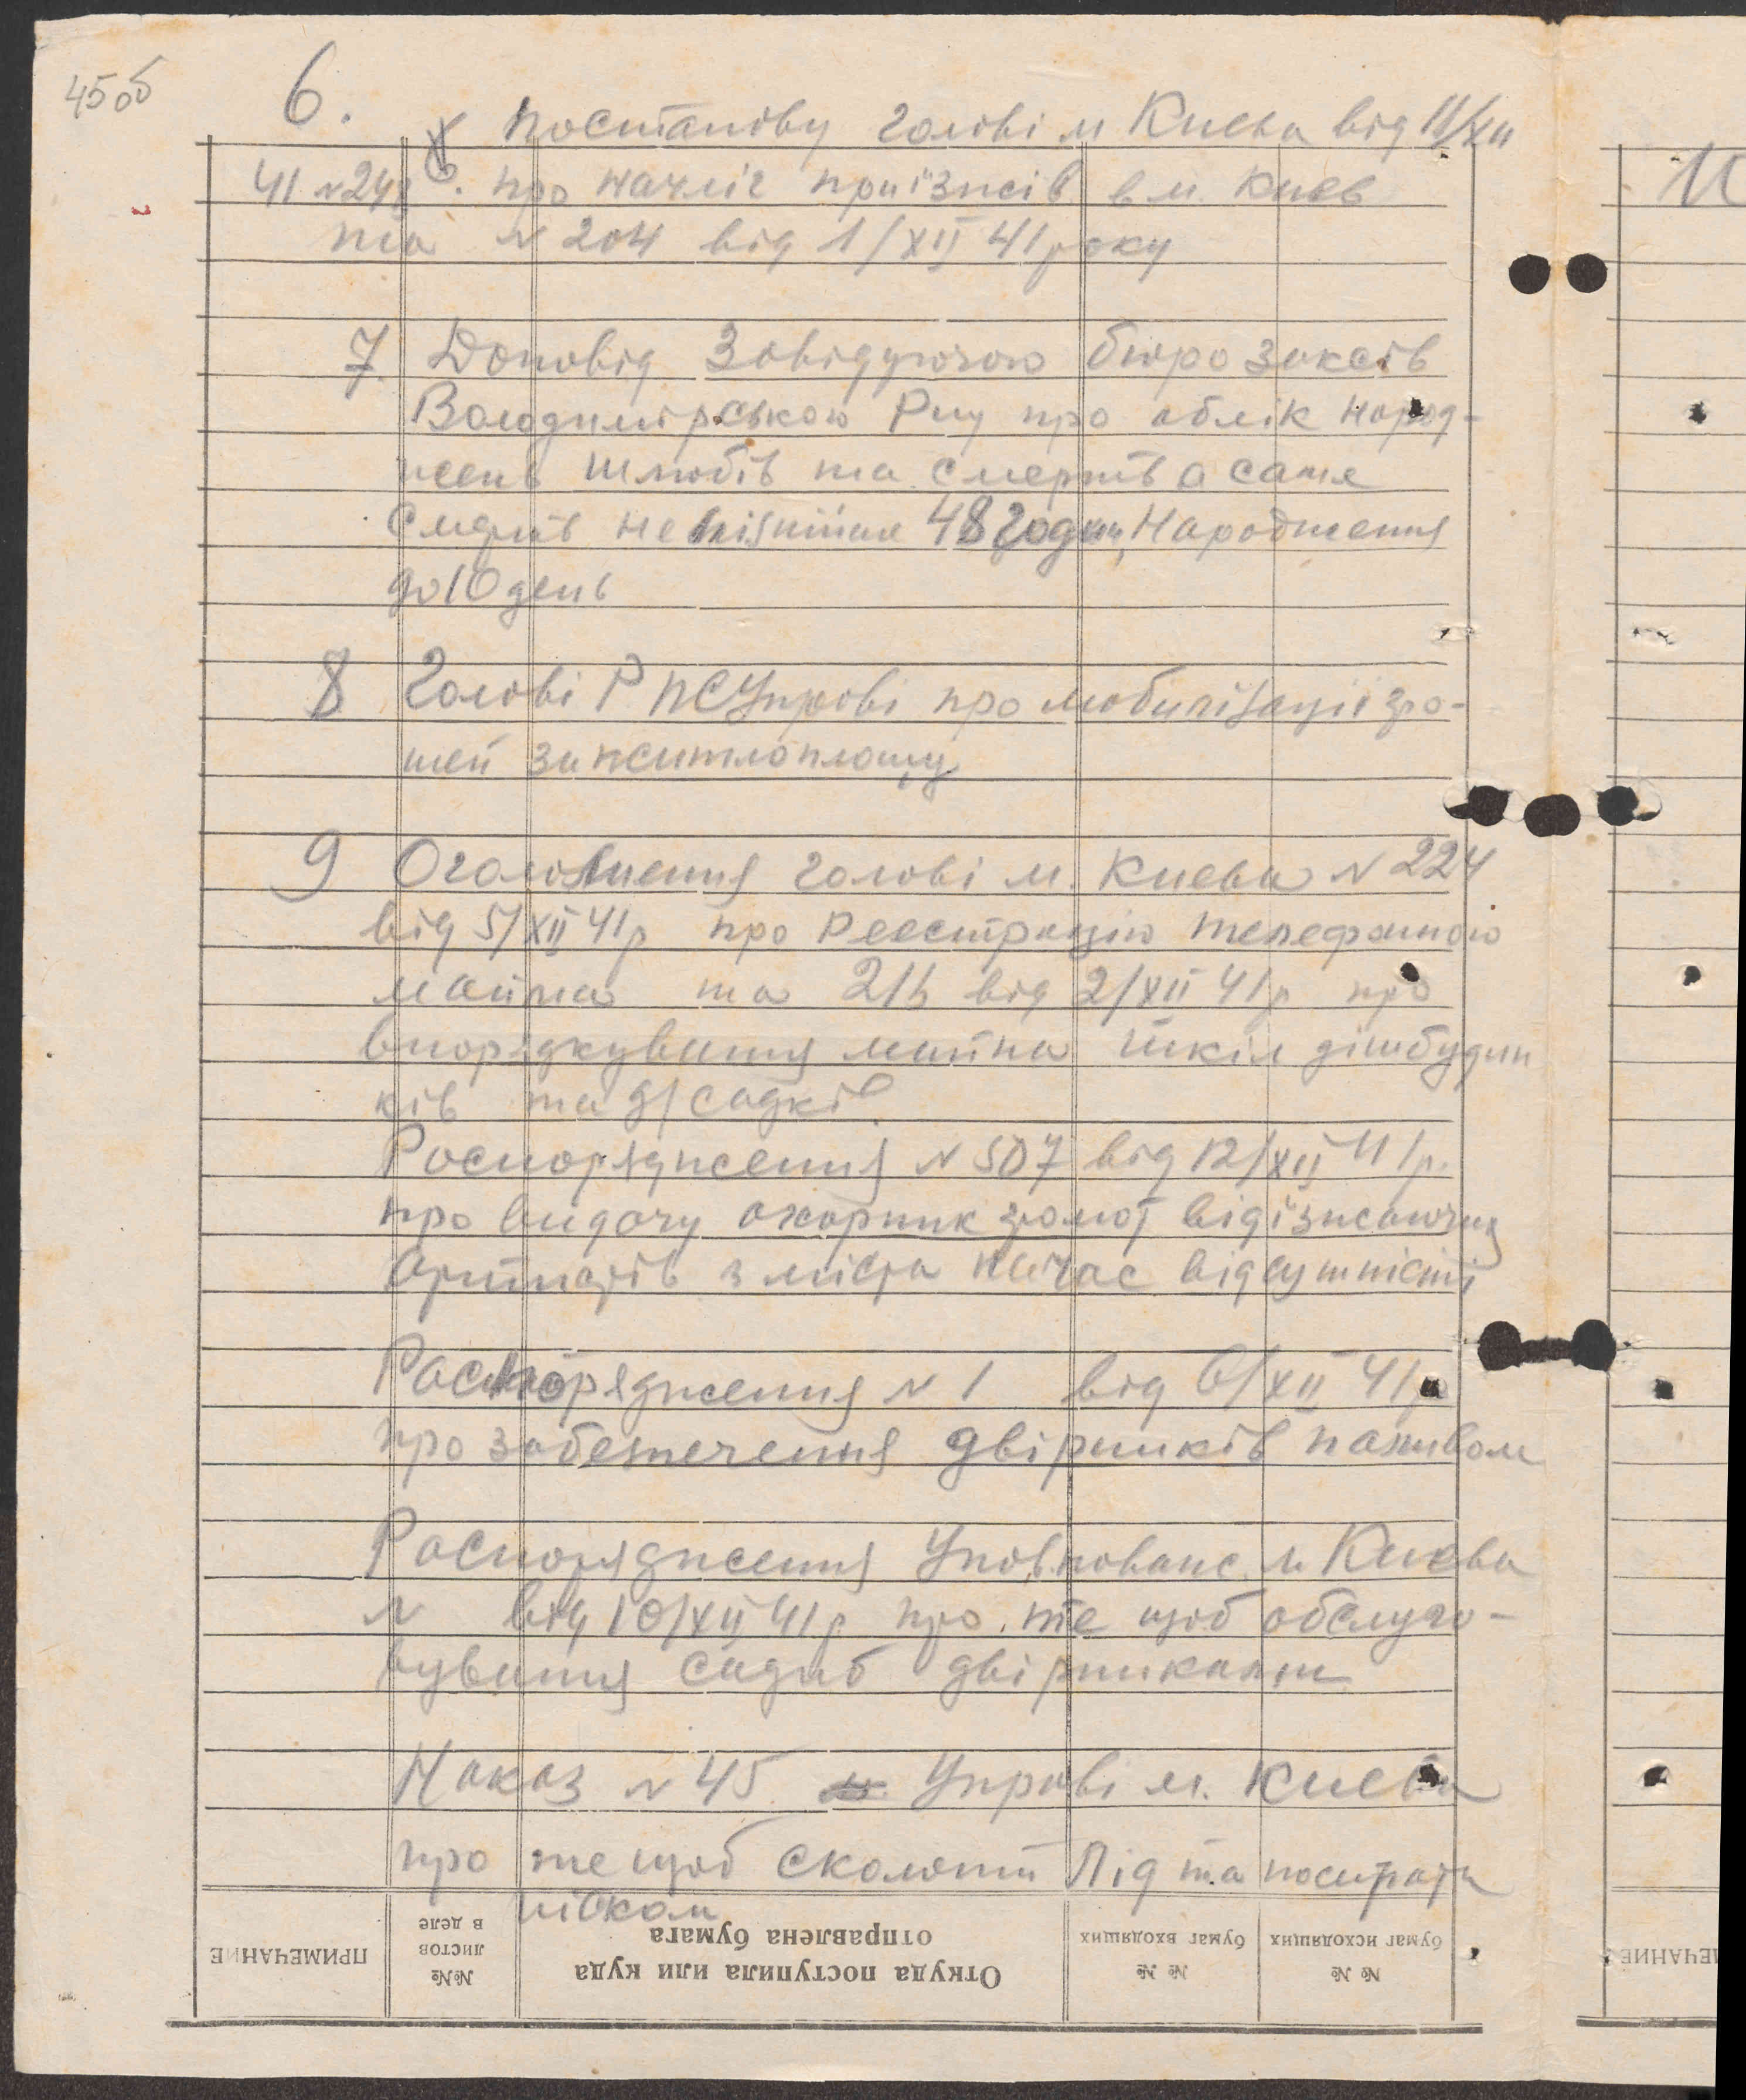 45об
6. Постанову голові м Києва від 11/XII
41 № 248 про начліг приїзжів в м. Київ
та № 204 від 1/XII 41 року
7. Доповід Завідуючою бюро заксів
Володимірською Рну про облік народ-
жень шлюбів та смертів а саме
смертів не пізніше 48 годин, Народження
до 10 день
8 Голові Р ПСУправі про мобилізаціі гро-
шей за житлоплощу
9 Оголошення голові м. Києва № 224
від 5/XII 41р про Реєстрацію телефонного
майна та 2/ від 2/XII 41р про
впорядкування майна шкіл дітбудин
ків та д/садків
Роспорядження № 507 від 12/XII 41р.
про видачу охорник грамот відїзжаючих
артистів з міста на час відсутністі
Распорядження № 1 від 6/XII 41р
про забезпечення двірників паливом
Распорядження Уповноваж. м. Києва
№ від 10/XII 41р про те щоб обслуго-
вування садиб двірниками
Наказ № 45 Управі м. Києва
про те щоб сколоти Лід та посипати
піском
ПРИМЕЧАНИЕ
№№ листов в деле
Откуда поступила или куда отправлена бумага
№ № бумаг входящих
№ № бумаг исходящих